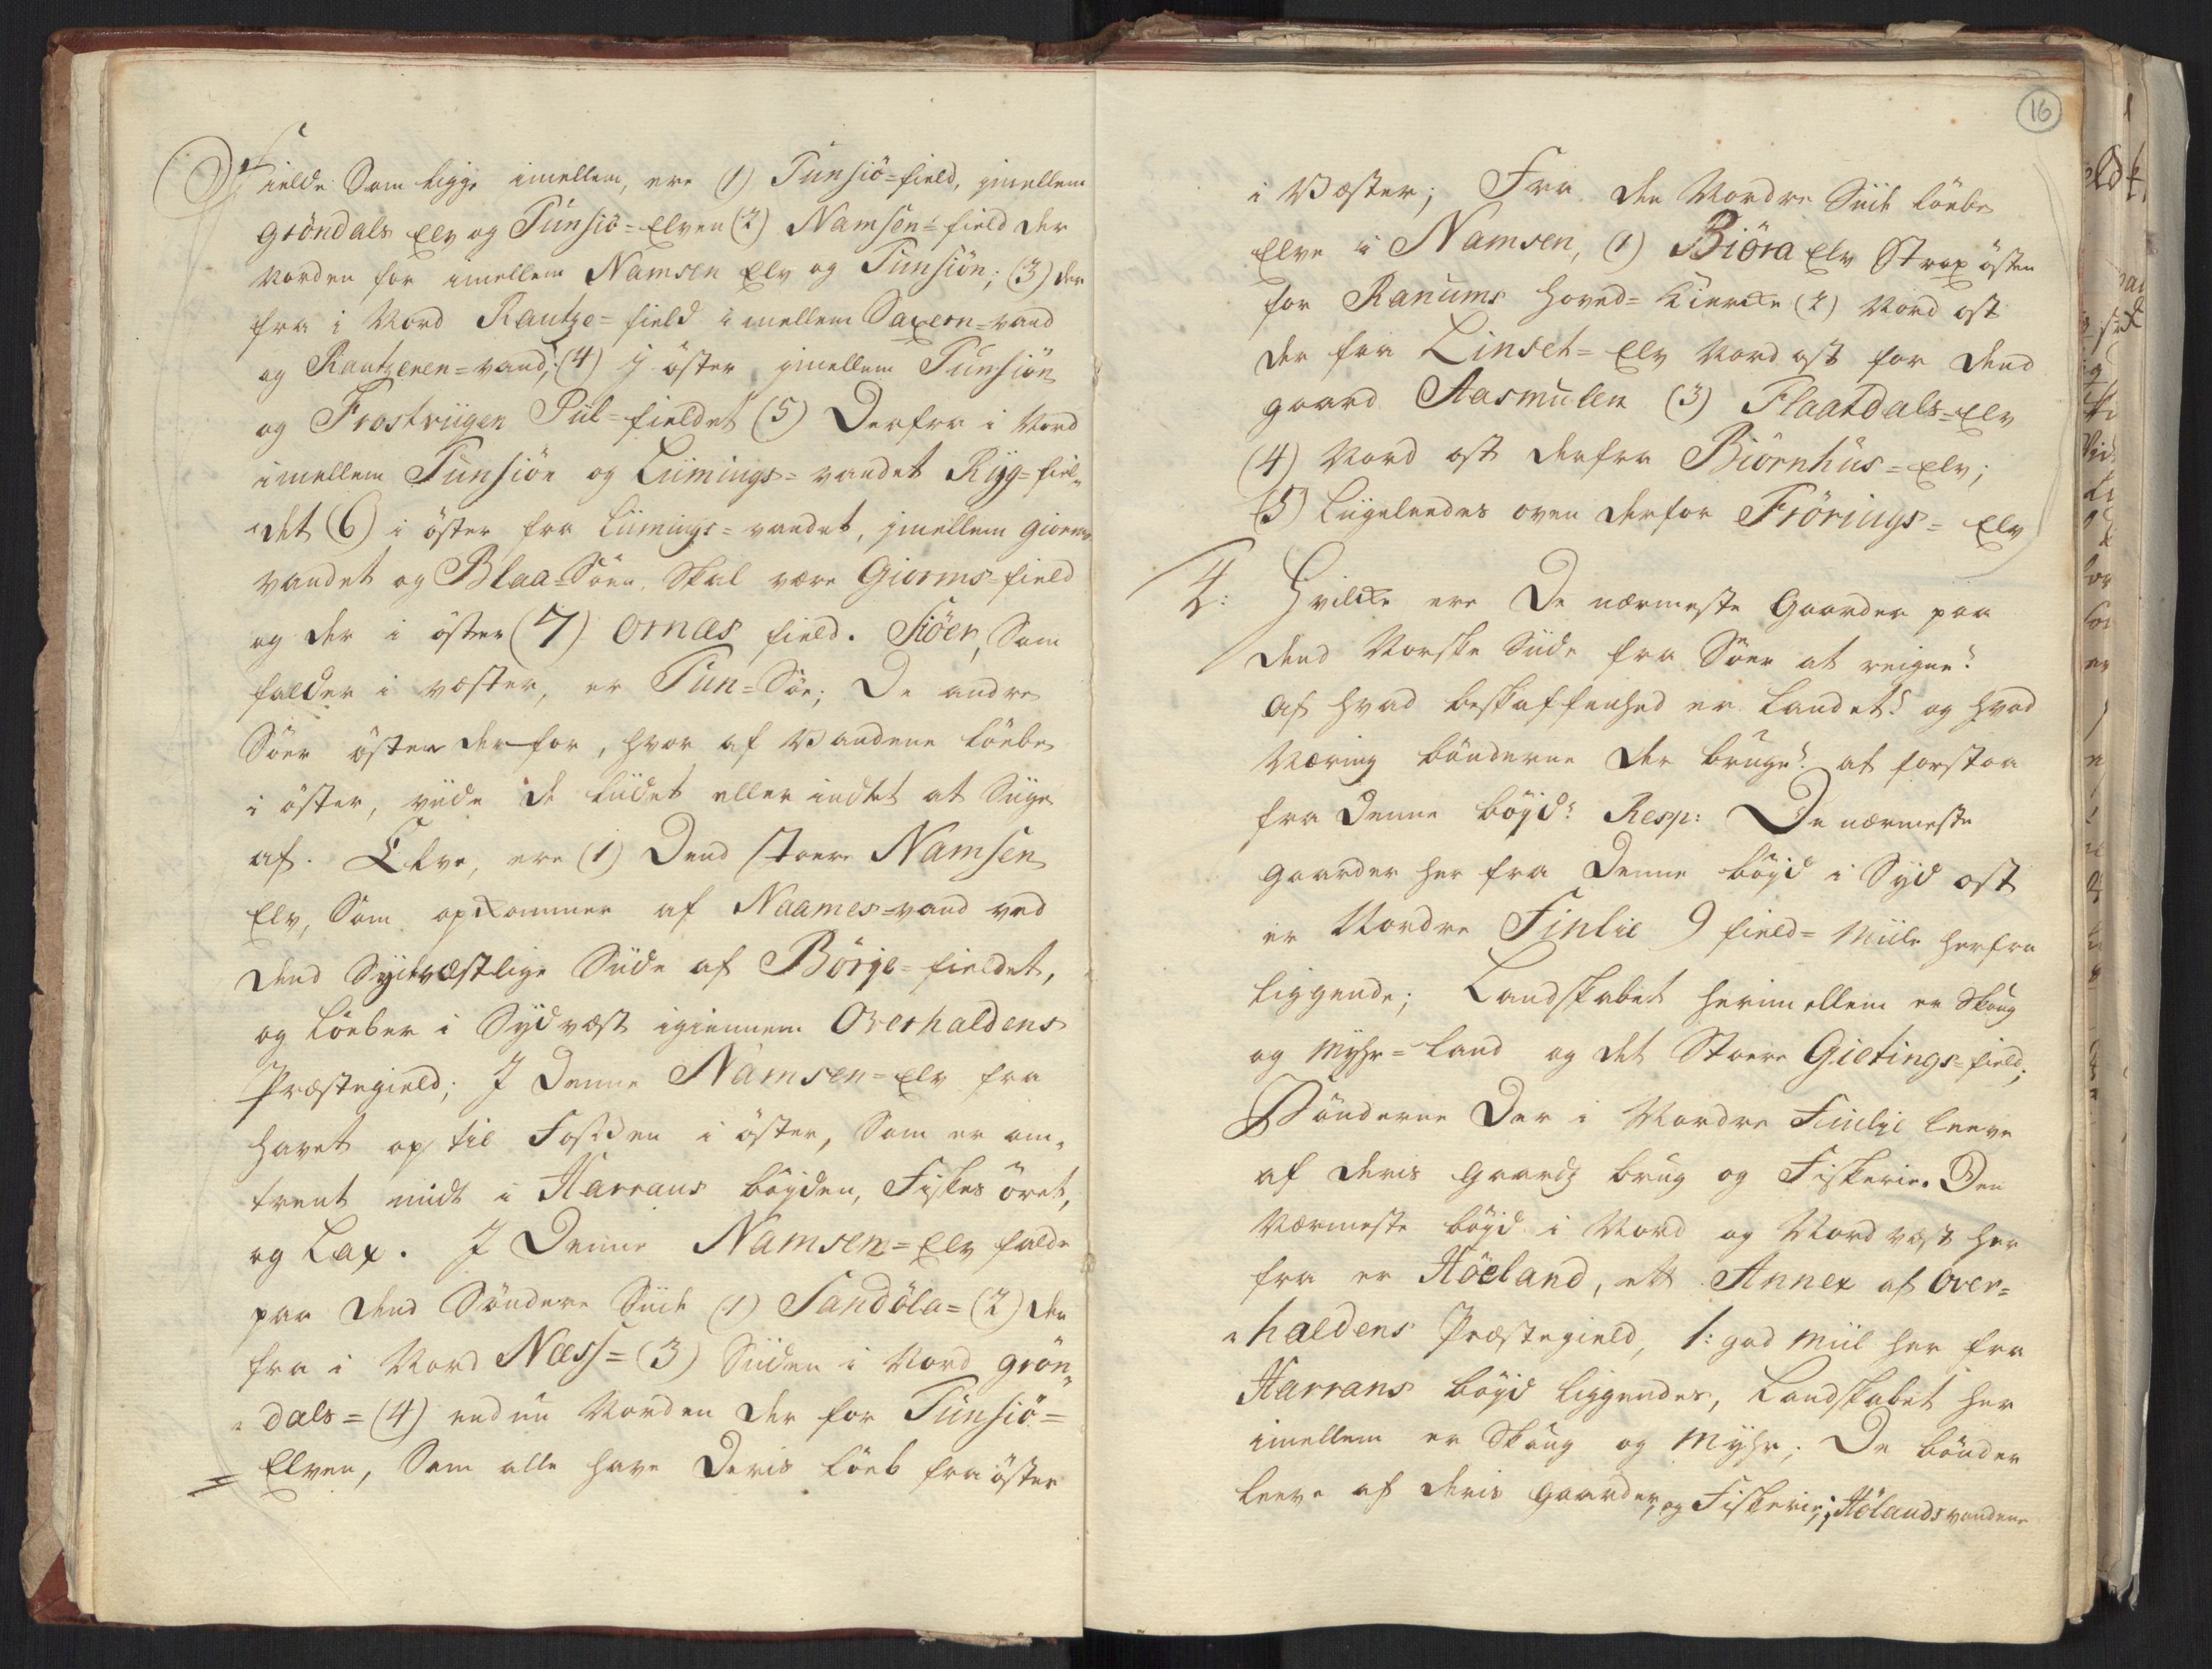 Fielde Som ligge imellem, ere (1) Tunsiö=field, imellem
Gröndals Elv og Tunsiö=Elven (2) Namsen=field der
norden for imellem Namsen Elv og Tunsiön; (3) der
fra i Nord Rautze=field imellem Saxern=vand
og Rautzeren=vand; (4) i öster imellem Tunsiön
og Frostviigen Piil=fieldet (5) Derfra i Nord
imellem Tunsiön og Liimings=vandet Ryg=fiel=
det (6) i öster fra Liimings=vandet, imellem Giorms
vandet og Blaa=Söen, Skal være Giorms=field
og der i öster (7) Ornæs field. Siöer, Som
falder i væster, er Tun=Söe; De andre
Söer östen derfor, hvor af Vandene löebe
i öster, viide de liidet eller indtet at Siige
af. Elve, ere (1) Dend stoere Namsen
Elv, Som opkommer af Naames=vand ved
dend Sydvæstlige Siide af Börge=fieldet,
og löeber i Sydvæst igiennem Overhaldens
Præstegield; I Denne Namsen=Elv fra
havet op til Fossen i öster, Som er om=
trent midt i Harrans bögden, Fiskes öret,
og Lax. I Denne Namsen=Elv falde
paa dend Söndere Siide (1) Sandöla= (2) der
fra i Nord Næss= (3) Siiden i Nord Grön=
dals= (4) endnu Norden der for Tunsiö=
Elven, Som alle have Deris löeb fra öster
16
i Væster; Fra den Nordre Siide löebe
Elve i Namsen, (1) Biöra Elv Strax östen
for Ranums Hoved=Kiercke (2) Nord ost
der fra Linset=Elv Nord ost for dend
gaard Aasmulen (3) Flaatdals=Elv
(4) Nord ost derfra Biörnhus=Elv;
(5) Liigeleedes oven derfor Frörings=Elv
4: Hvilcke ere De nærmeste Gaarder paa
dend Norske Siide fra Söer at reigne?
Af hvad beskaffenhed er Landet? og hvad
Næring bönderne der bruge? at forstaa
fra Denne böyd? Resp: De nærmeste
gaarder her fra Denne böyd i Syd ost
er Nordre Finlie 9 field=Miile herfra
liggende; Landskabet herimellem er Skoug
og Myhr=Land og det Stoere Gietings=field;
Bönderne Der i Nordre Finlie leeve
af deris gaards brug og Fiskerie. Den
Nærmeste böyd i Nord og Nord væst her
fra er Höeland, ett Annex af Over=
haldens Præstegield, 1: god Miil her fra
Harrans böyd liggendes, Landskabet her
imellem er Skoug og Myhr; De bönder
leeve af deris gaarder, og Fiskerie i Hölands vandene